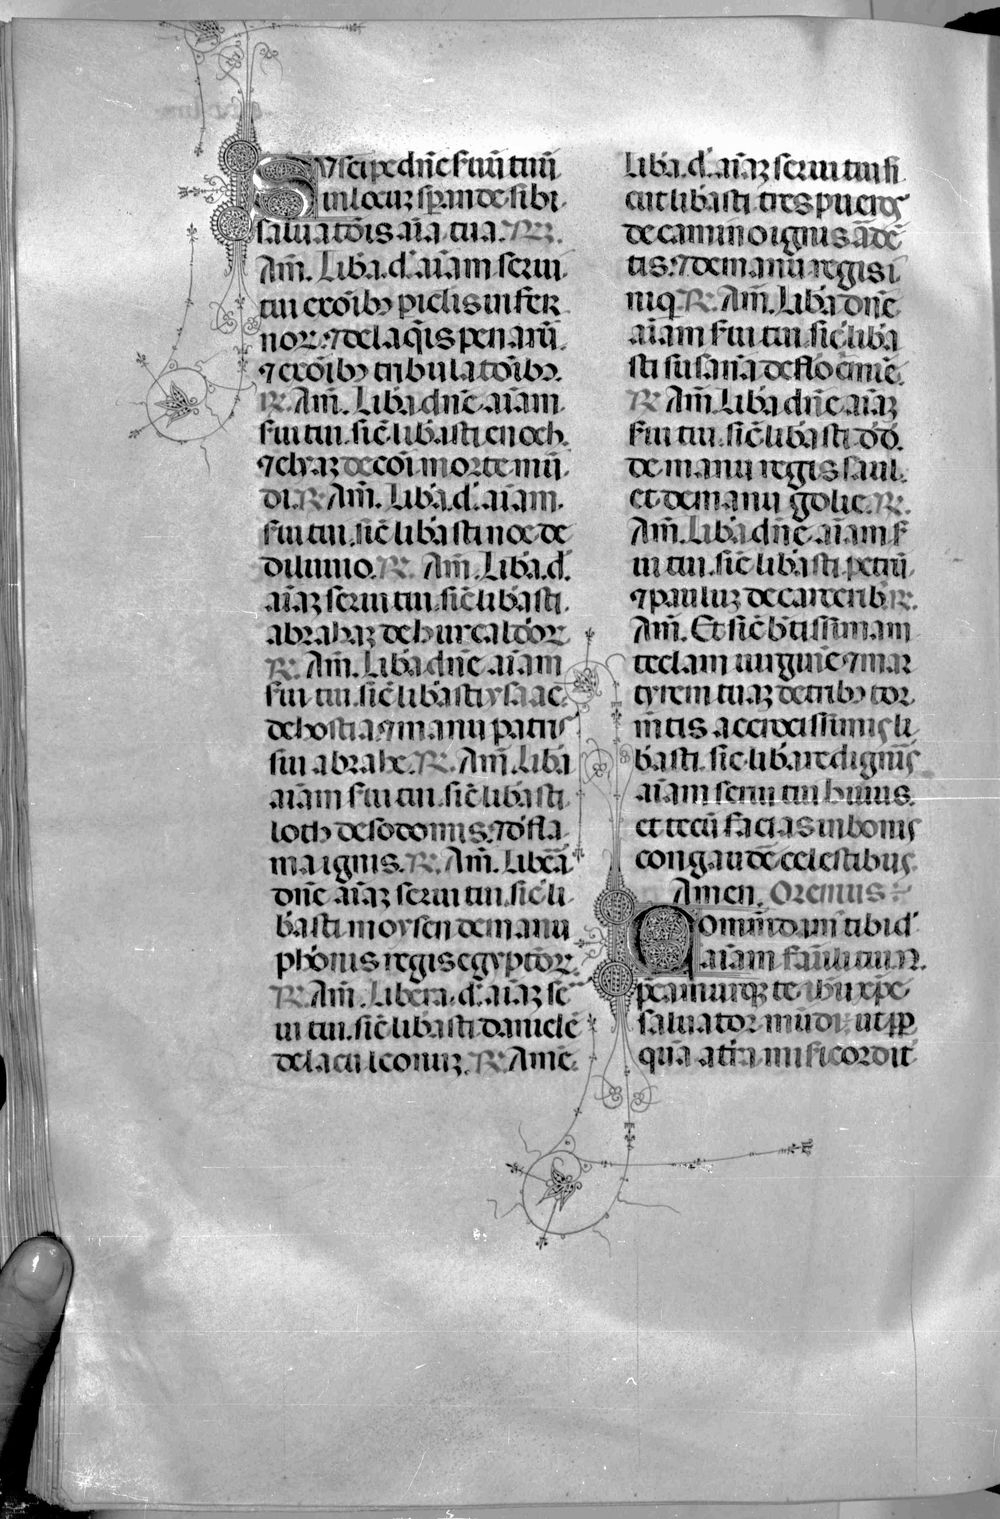 Suscipe dn̄e ẜuū tuū
in locuꝫ sꝑande sibi
saluatōis aīa tua. ℞.
Am̄. Liba. d̓. aīam serui
tui ex oīb᷒ pıclis infer
noꝝ. ⁊ de laq̄is penaꝝ
⁊ ex oīb᷒ tribulatōib᷒.
℞. Am̄. Liba dn̄e aīam
ẜui tui. sic̄ libasti enoch.
⁊ elyaꝫ de coī morte mū
di. ℞. Am̄. Liba. d̓. aīam
ẜui tui. sic̄ libasti noe de
diluuio. ℞. Am̄. Liba. d̓.
aīaꝫ serui tui. sic̄ libasti
abrahaꝫ de hur caldeoꝝ
℞. Am̄. Liba dn̄e aīam
ẜui tui. sic̄ libasti ysaac.
de hostia ⁊ manu patris
sui abrahe. ℞. Am̄. Liba
aīam ẜui tui. sic̄ libasti
loth de sodomis. ⁊ d̓ fla
ma ignis. ℞. Am̄. Libā
dn̄e aīaꝫ serui tui. sic̄ li
basti moysen de manu
phōnis regis egyptioꝝ.
℞. Am̄. Libera. d̓. aīaꝫ se
ui tui. sic̄ libasti danielē
de lacu leonuꝫ. ℞. Amē.
Liba. d̓. aīaꝫ serui tui si
cut libasti tres pueros
de camino ignis adē
tis. ⁊ de manū regis i
niq. ℞. Am̄. Liba dn̄e
aīam ẜui tui. sic̄ liba
sti susanā de flō c̄mīe.
℞. Am̄. Liba dn̄e aīaꝫ
ẜui tui. sic̄ libasti dd̓.
de manu regis saul.
et de manu golie. ℞.
Am̄. Liba dn̄e aīam ẜ
ui tui. sic̄ libasti petrū
⁊ pauluꝫ de carcerib. ℞.
Am̄. Et sic̄ btissimam
teclam uirginē ⁊ mar
tyrem tuaꝫ de trib᷒ tor
m̄tis atrocissimis li
basti. sic̄ libare digneris
aīam serui tui huius.
et tecū facias in bonis
congaudē celestibus.
Amen. Oremus
Comm̄dam᷒ tibi d̓
aīam famuli tui N.
pcamurqꝫ te ihū xpe
saluator mūdi. ut ꝓp
quā ad t̄ra misicordit̓